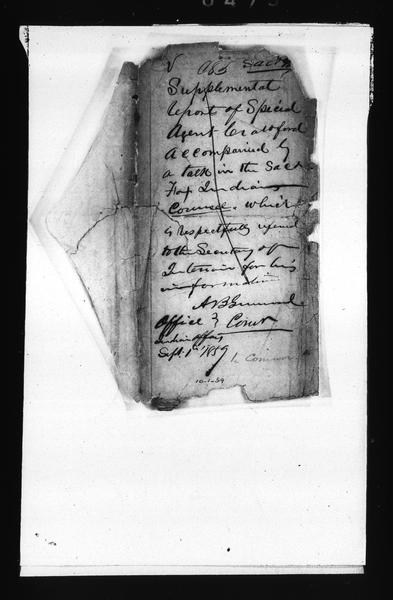 Supplemental
report of Special
Agent Crawford
accompanied by
a talk in the Sac &
Fox Indians
Council. which
is respectfully
to the Secretary of
Interior for his
information
A B Greenwood
Office } Comr
Indian Affairs
Sept. 1st 1859
10-1-59